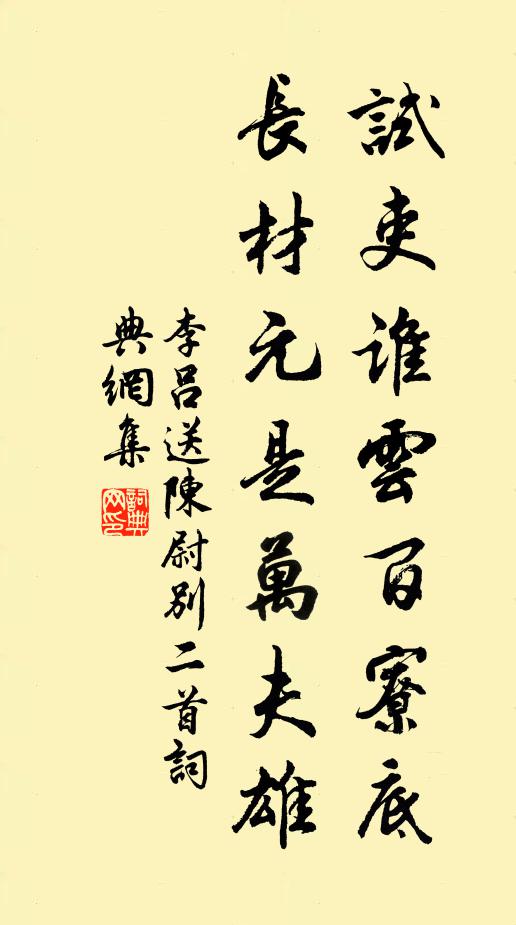 試吏誰雲百寮底
長材元是萬夫雄
李呂送陳尉別二首詞
典網集
詞典網印